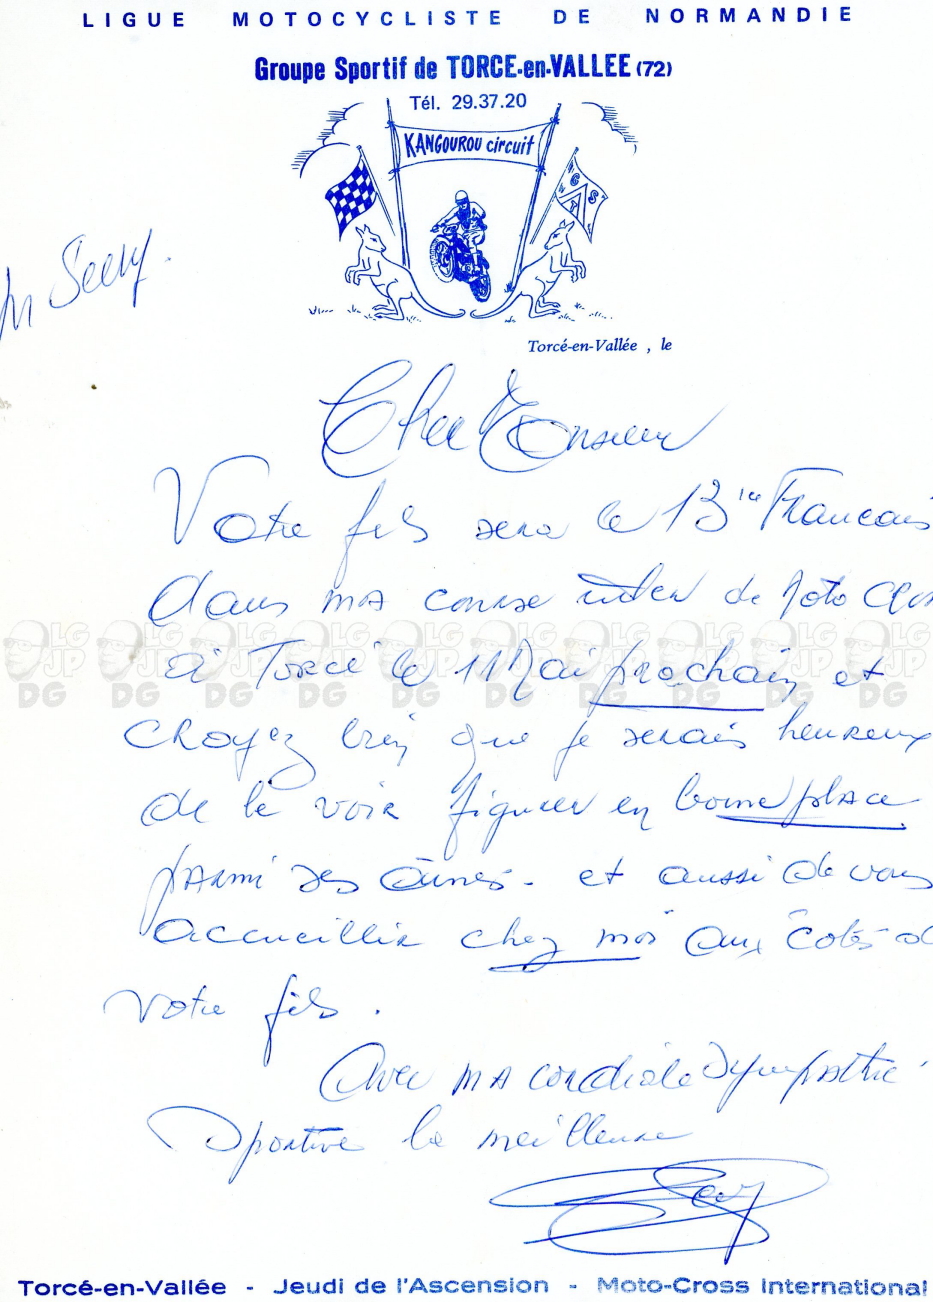 LIGUE MOTOCYCLISTE DE NORMANDIE
Groupe Sportif de TORCE-en-VALLEE (72)
Tél. 29.37.20
KANGOUROU circuit
G S
T
Torcé-en-Vallée , le
Cher Monsieur
Votre fils sera le 13ie Francais
dans ma course inter de Moto
à Torcé le 11 Mai prochain et
croyez bien que je serais heureux
de le voir figurer en bonne place
parmi ses ainés - et aussi de vous
accueillir chez moi aux côtés d
votre fils .
Avec ma cordiale Sympathie
Sportive la meilleure
Torcé-en-Vallée - Jeudi de l'Ascension - Moto-Cross International
LG JP DG LG JP DG LG JP DG LG JP DG LG JP DG LG JP DG LG JP DG LG JP DG LG JP DG